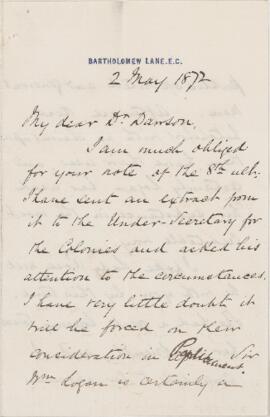 BARTHOLOMEW LANE. E.C.
2 May 1872
My dear Dr. Dawson,
I am much obliged
for your note of the 8th ult.
I have sent an extract from
it to the Under-Secretary for
the Colonies and asked his
attention to the circumstances.
I have very little doubt it
will be forced on their
consideration in Parliament. Sir
Wm Logan is certainly a